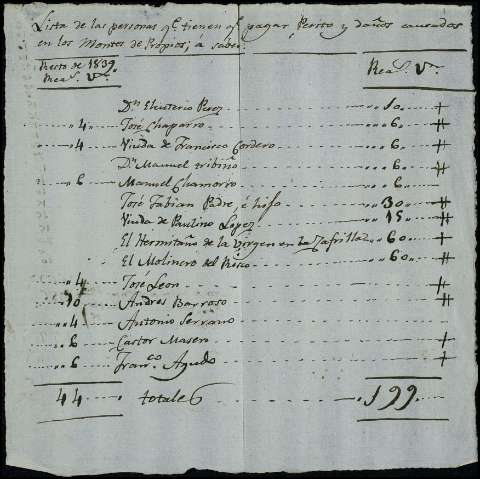 Lista de las personas qe. tienen qe. pagar Perito y daños causados
en los Montes de Propios; á saber.
Resto de 1839. Reas. Vn.
Reas. Vn.
Dn. Eleuterio Perez 10
4 José Chaparro 6
4 Viuda de Francisco Cordero 6
Dn. Manuel 6
6 Manuel Chamorro 6
José Fabian Padre, é hijo 30
Viuda de Paulino Lopez 15
El Hermitaño de la Virgen en la Zafrilla 60
El Molinero del 60
4 José Leon
10 Andres Barroso
4 Antonio Serrano
6 Castor Masero
6 Franco. Agudo
44 totales 199